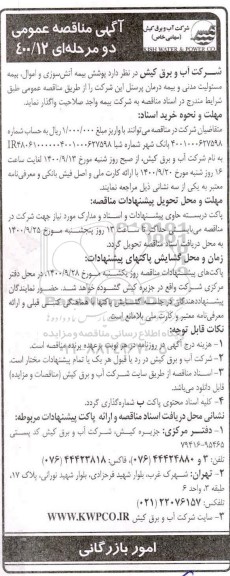 شرکت آب و برق کیش
(سهامی خاص)
KISH WATER & POWER CO.
آگهی مناقصه عمومی
دو مرحله‌ای ۴۰۰/۱۲
شرکت آب و برق کیش در نظر دارد پوشش بیمه آتش‌سوزی و اموال، بیمه
مسئولیت مدنی و بیمه درمان پرسنل این شرکت را از طریق مناقصه عمومی طبق
شرایط مندرج در اسناد مناقصه به شرکت بیمه واجد صلاحیت واگذار نماید.
مهلت و نحوه خرید اسناد:
متقاضیان شرکت در مناقصه می‌توانند با واریز مبلغ ۱/۰۰۰/۰۰۰ ریال به حساب شماره
به نام شرکت آب و برق کیش، از صبح روز شنبه مورخ ۱۴۰۰/۹/۱۳ لغایت ساعت
۱۶ روز شنبه مورخ ۱۴۰۰/۹/۲۰ با ارائه کارت ملی و اصل فیش بانکی و معرفی‌نامه
معتبر به یکی از سه نشانی ذیل مراجعه نمایند.
مهلت و محل تحویل پیشنهادات مناقصه:
پاکت دربسته حاوی پیشنهادات و اسناد و مدارک مورد نیاز جهت شرکت در
مناقصه می‌بایست حداکثر تا ساعت ۱۴ روز پنجشنبه مورخ ۱۴۰۰/۹/۲۵
به محل دریافت اسناد مناقصه تحویل گردد.
زمان و محل گشایش پاکتهای پیشنهادات:
پاکت‌های پیشنهادات مناقصه روز یکشنبه مورخ ۱۴۰۰/۹/۲۸ در محل دفتر
مرکزی شرکت واقع در جزیره کیش گشوده خواهد شد. حضور نمایندگان
پیشنهاددهندگان در جلسه گشایش پاکتها با هماهنگی کتبی قبلی و ارائه
معرفی‌نامه معتبر و کارت ملی بلامانع است.
نکات قابل توجه:
۱- هزینه درج آگهی در روزنامه در هر نوبت برعهده برنده مناقصه است.
۲- شرکت آب و برق کیش در رد یا قبول هر یک یا تمام پیشنهادات مختار است.
۳- اسناد مناقصه از طریق سایت شرکت آب و برق کیش (مناقصات و مزایده)
قابل دانلود می‌باشد.
۴- کلیه اسناد محتوی پاکت ب شماره‌گذاری گردد.
نشانی محل دریافت اسناد مناقصه و ارائه پاکت پیشنهادات مربوطه:
۱- دفتر مرکزی: جزیره کیش، شرکت آب و برق کیش کد پستی
۷۹۴۱۶-۹۵۴۶۵
تلفن: ۳ و ۴۴۴۲۴۸۸۰ (۰۷۶)، فاکس: ۴۴۴۲۳۸۱۸ (۰۷۶)
۲- تهران: شهرک غرب، بلوار شهید فرحزادی، بلوار شهید نورانی، پلاک ۱۷،
طبقه ۳، واحد ۶
تلفکس: ۲۲۰۷۶۱۵۷ (۰۲۱)
۳- سایت شرکت آب و برق کیش WWW.KWPCO.IR
امور بازرگانی